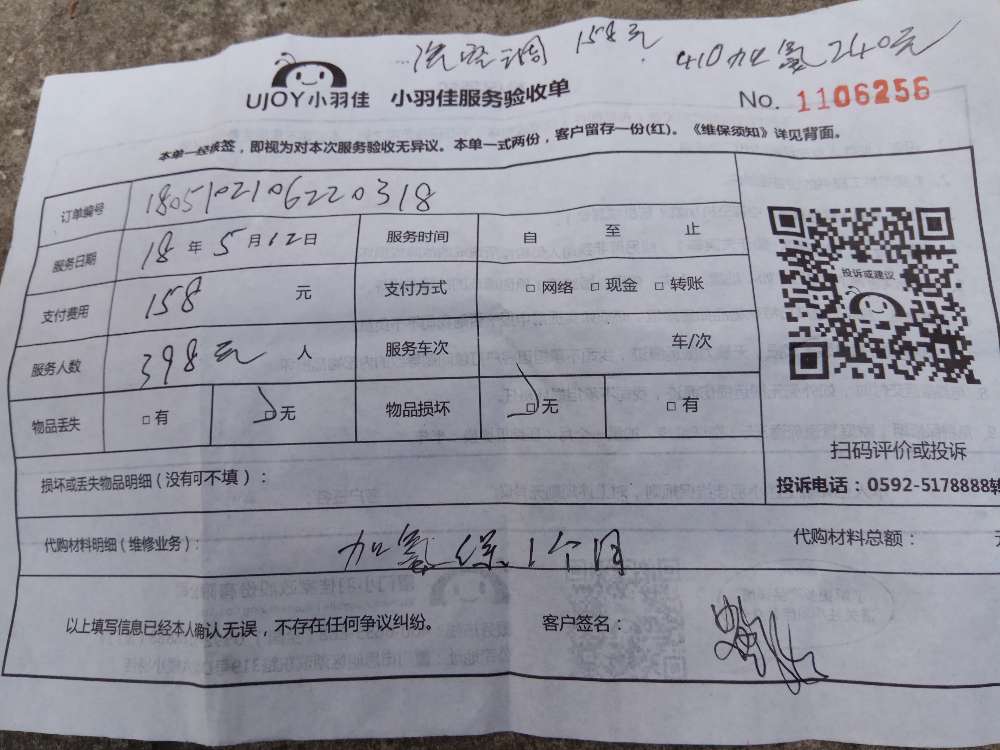 洗空调 158元 410加氟240元
UJOY小羽佳 小羽佳服务验收单
No. 1106256
本单一经核签，即视为对本次服务验收无异议。本单一式两份，客户留存一份(红)。《维保须知》详见背面。
订单编号 1805102106220318
服务日期 18 年 5 月 12 日 服务时间 自 至 止
支付费用 158 元 支付方式 □ 网络 □ 现金 □ 转账
服务人数 398元 人 服务车次 车/次
物品丢失 □ 有 □ 无 物品损坏 □ 无 □ 有
投诉或建议
扫码评价或投诉
投诉电话：0592-5178888转
损坏或丢失物品明细（没有可不填）：
代购材料明细（维修业务）： 加氟保1个月 代购材料总额：
以上填写信息已经本人确认无误，不存在任何争议纠纷。 客户签名：